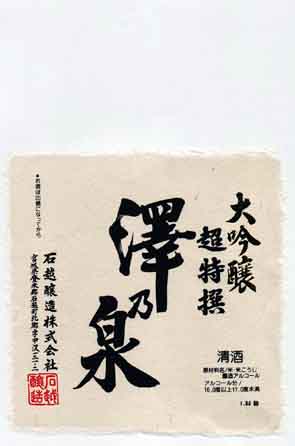 大吟醸
超特撰
澤乃泉
清酒
原材料名/米・米こうじ
醸造アルコール
アルコール分/
16.0度以上17.0度未満
1.8ℓ詰
●お酒は20歳になってから
石越醸造株式会社
宮城県登米郡石越町北郷字中澤
石越
醸造